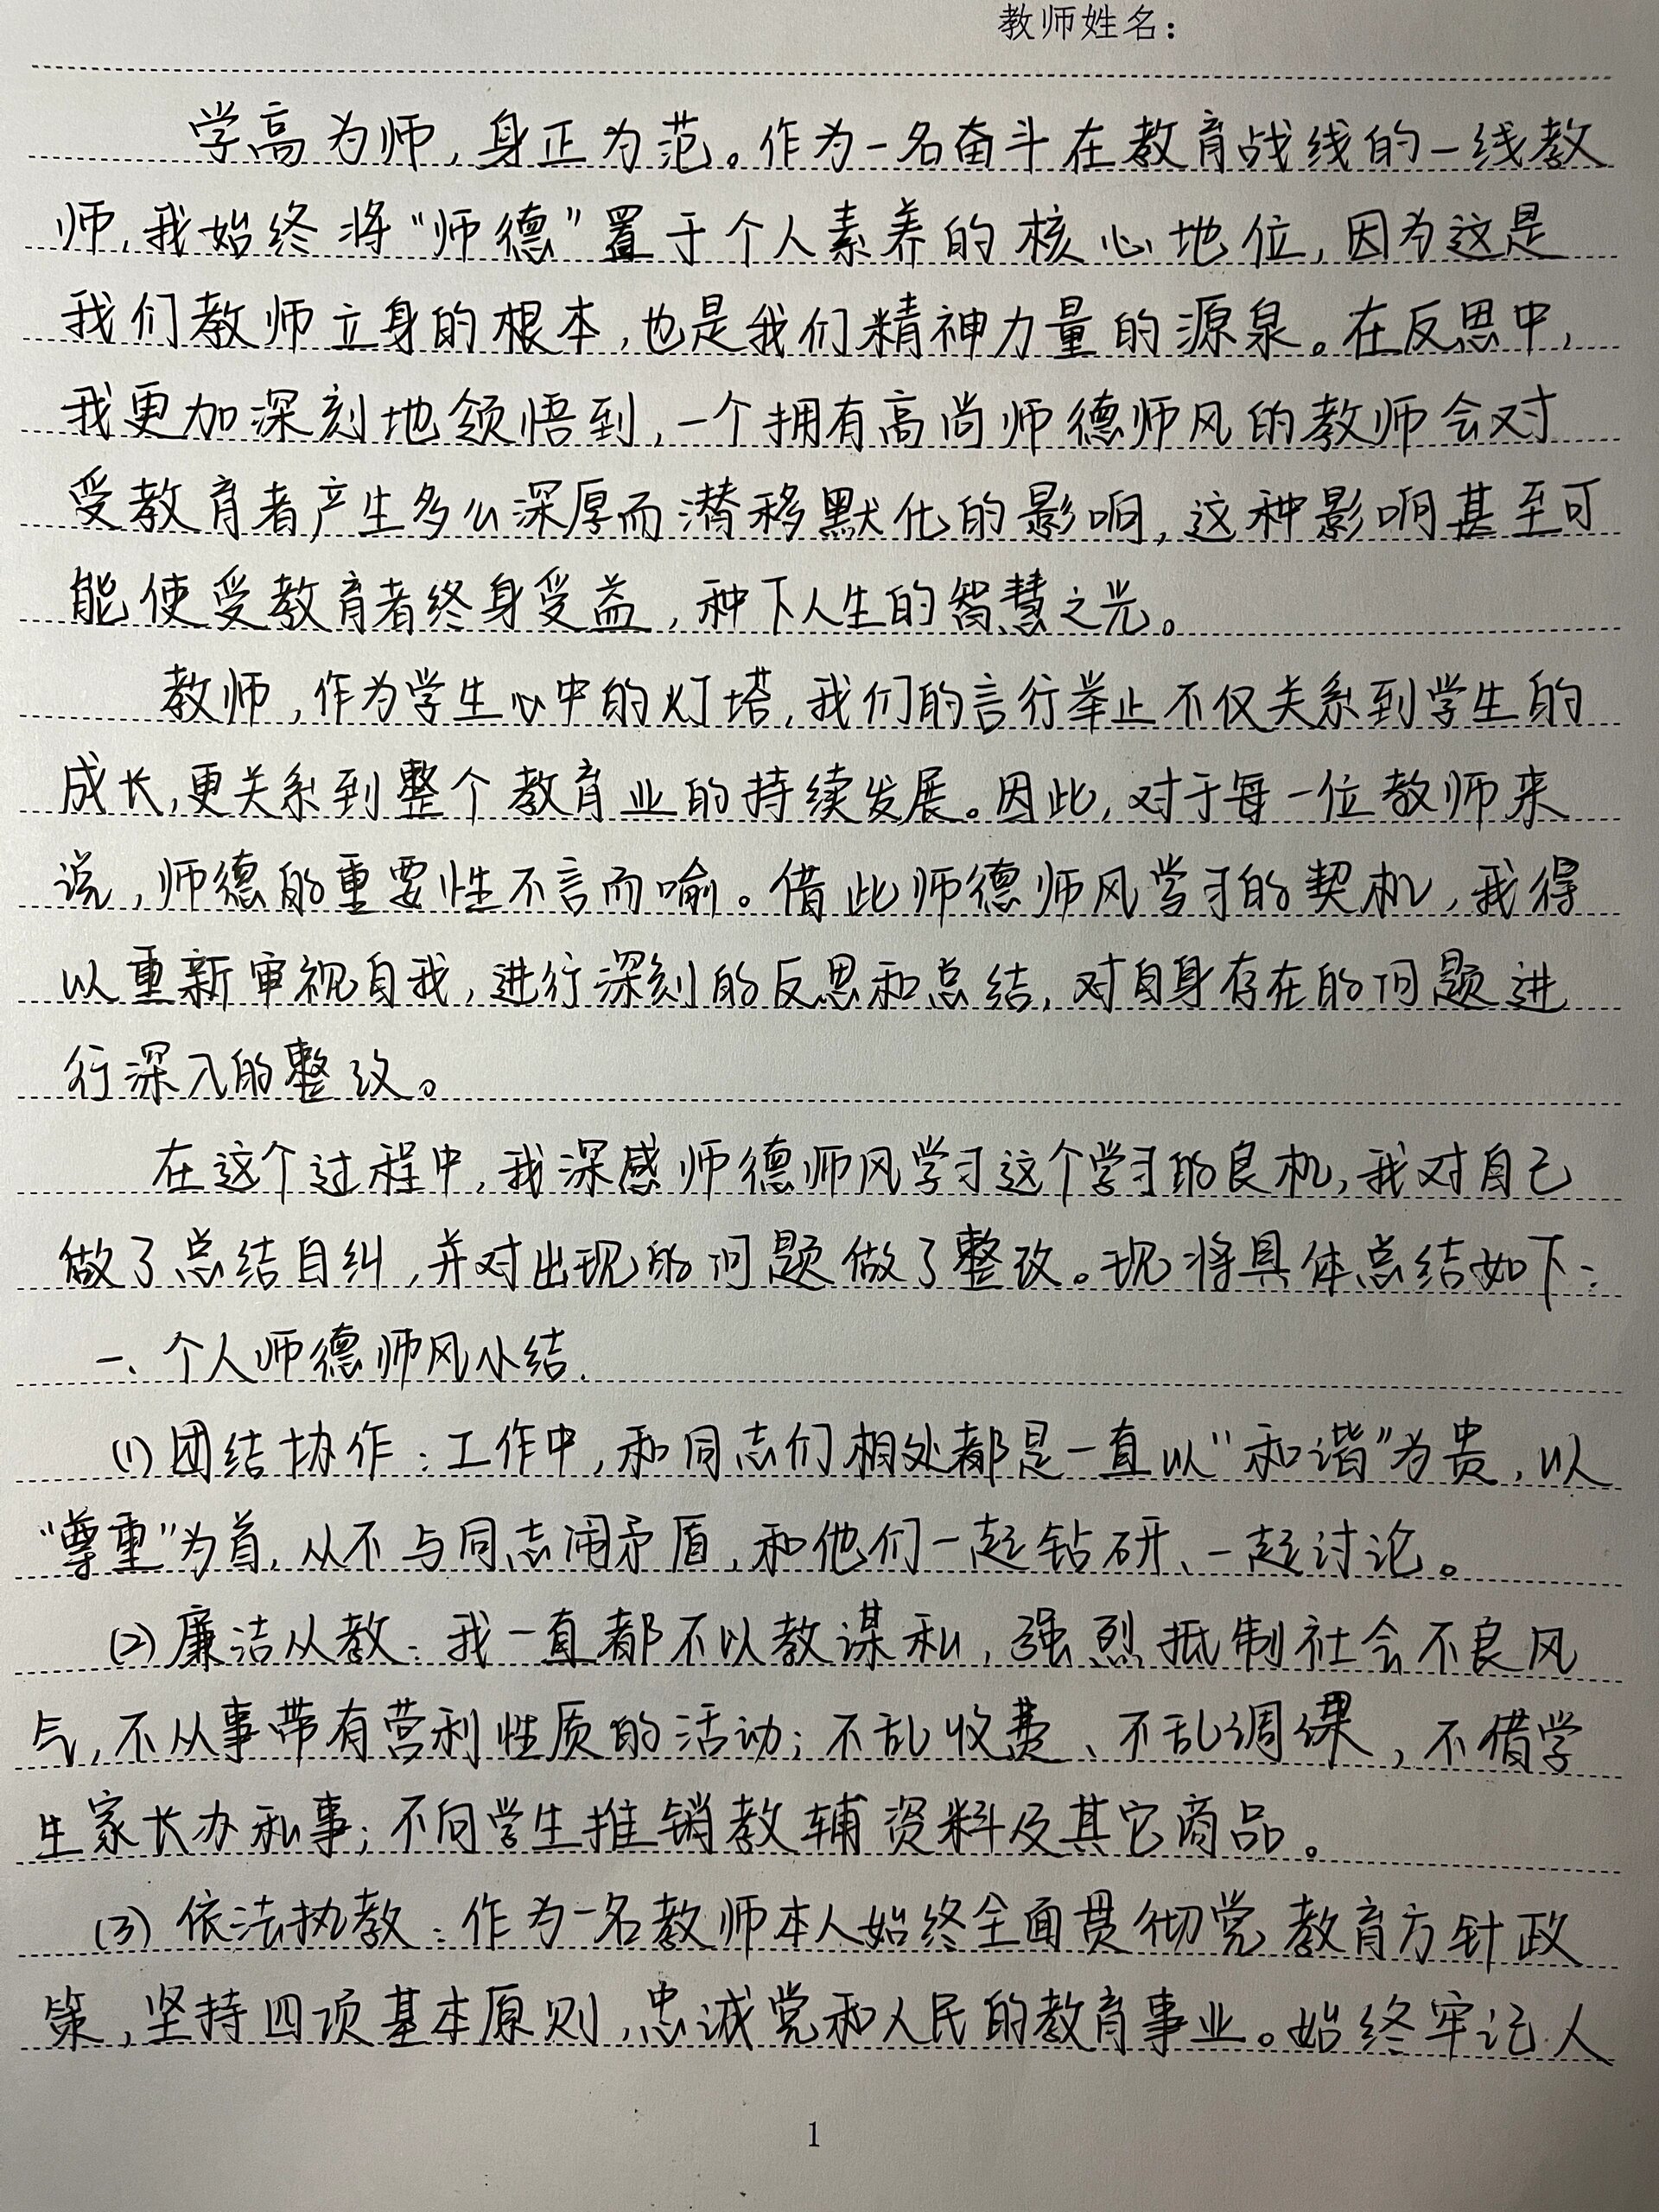 教师姓名：
学高为师，身正为范。作为一名奋斗在教育战线的一线教
师，我始终将“师德”置于个人素养的核心地位，因为这是
我们教师立身的根本，也是我们精神力量的源泉。在反思中，
我更加深刻地领悟到，一个拥有高尚师德师风的教师会对
受教育者产生多么深厚而潜移默化的影响，这种影响甚至可
能使受教育者终身受益，种下人生的智慧之光。
教师，作为学生心中的灯塔，我们的言行举止不仅关系到学生的
成长，更关系到整个教育业的持续发展。因此，对于每一位教师来
说，师德的重要性不言而喻。借此师德师风学习的契机，我得
以重新审视自我，进行深刻的反思和总结，对自身存在的问题进
行深入的整改。
在这个过程中，我深感师德师风学习这个学习的良机，我对自己
做了总结自纠，并对出现的问题做了整改。现将具体总结如下：
一、个人师德师风小结.
(1)团结协作：工作中，和同志们相处都是一直以“和谐”为贵，以
“尊重”为首，从不与同志闹矛盾，和他们一起钻研、一起讨论。
(2)廉洁从教：我一直都不以教谋私，强烈抵制社会不良风
气，不从事带有营利性质的活动；不乱收费、不乱调课，不借学
生家长办私事；不向学生推销教辅资料及其它商品。
(3)依法执教：作为一名教师本人始终全面贯彻党教育方针政
策，坚持四项基本原则，忠诚党和人民的教育事业。始终牢记人
1